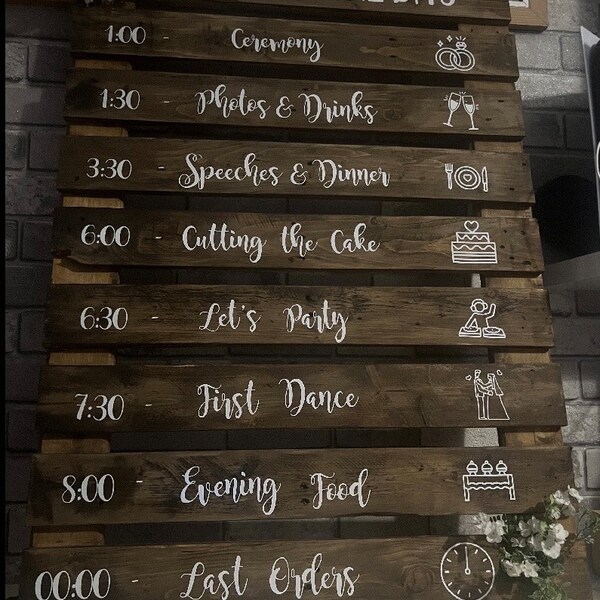 1:00 - Ceremony
1:30 - Photos & Drinks
3:30 - Speeches & Dinner
6:00 - Cutting the Cake
6:30 - Let's Party
7:30 - First Dance
8:00 - Evening Food
00:00 - Last Orders